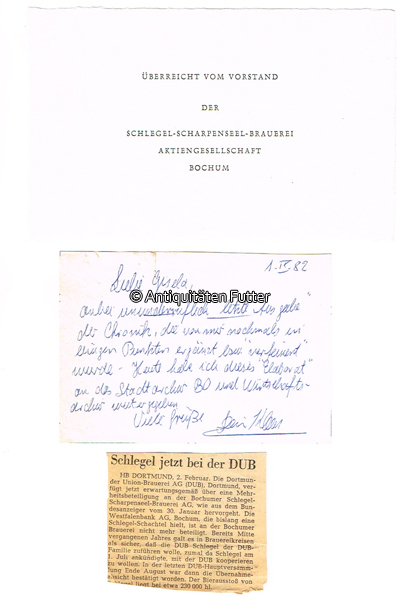 ÜBERREICHT VOM VORSTAND
DER
SCHLEGEL-SCHARPENSEEL-BRAUEREI
AKTIENGESELLSCHAFT
BOCHUM
1.IV.82
Liebe Gisela,
anbei unwiderruflich letzte Ausgabe
der Chronik, die von mir nochmals in
einigen Punkten ergänzt bzw "verfeinert"
wurde. - Heute habe ich dieses "Elaborat"
an das Stadtarchiv BO und Wirtschafts-
archiv weitergegeben
Viele Grüße
© Antiquitäten Futter
Schlegel jetzt bei der DUB
HB DORTMUND, 2. Februar. Die Dortmun-
der Union-Brauerei AG (DUB), Dortmund, ver-
fügt jetzt erwartungsgemäß über eine Mehr-
heitsbeteiligung an der Bochumer Schlegel-
Scharpenseel-Brauerei AG, wie aus dem Bun-
desanzeiger vom 30. Januar hervorgeht. Die
Westfalenbank AG, Bochum, die bislang eine
Schlegel-Schachtel hielt, ist an der Bochumer
Brauerei nicht mehr beteiligt. Bereits Mitte
vergangenen Jahres galt es in Brauereikreisen
als sicher, daß die DUB Schlegel der DUB-
Familie zuführen wolle, zumal da Schlegel am
1. Juli ankündigte, mit der DUB kooperieren
zu wollen. In der letzten DUB-Hauptversamm-
lung Ende August war dann die Übernahme-
absicht bestätigt worden. Der Bierausstoß von
Schlegel liegt bei etwa 230 000 hl.